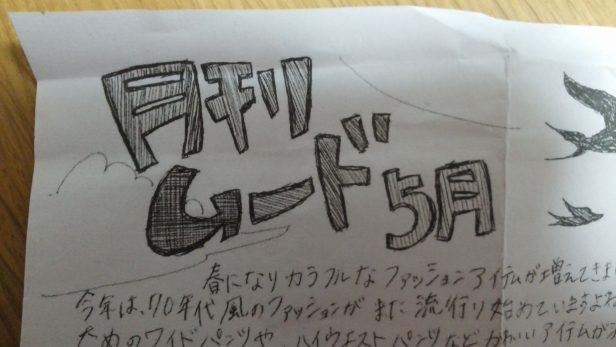 月刊
ムード 5月
春になりカラフルなファッションアイテムが増えてきま
今年は、70年代風のファッションがまた流行り始めていますよね
ためのワイドパンツや、ハイウエストパンツなどかわいいアイテムが